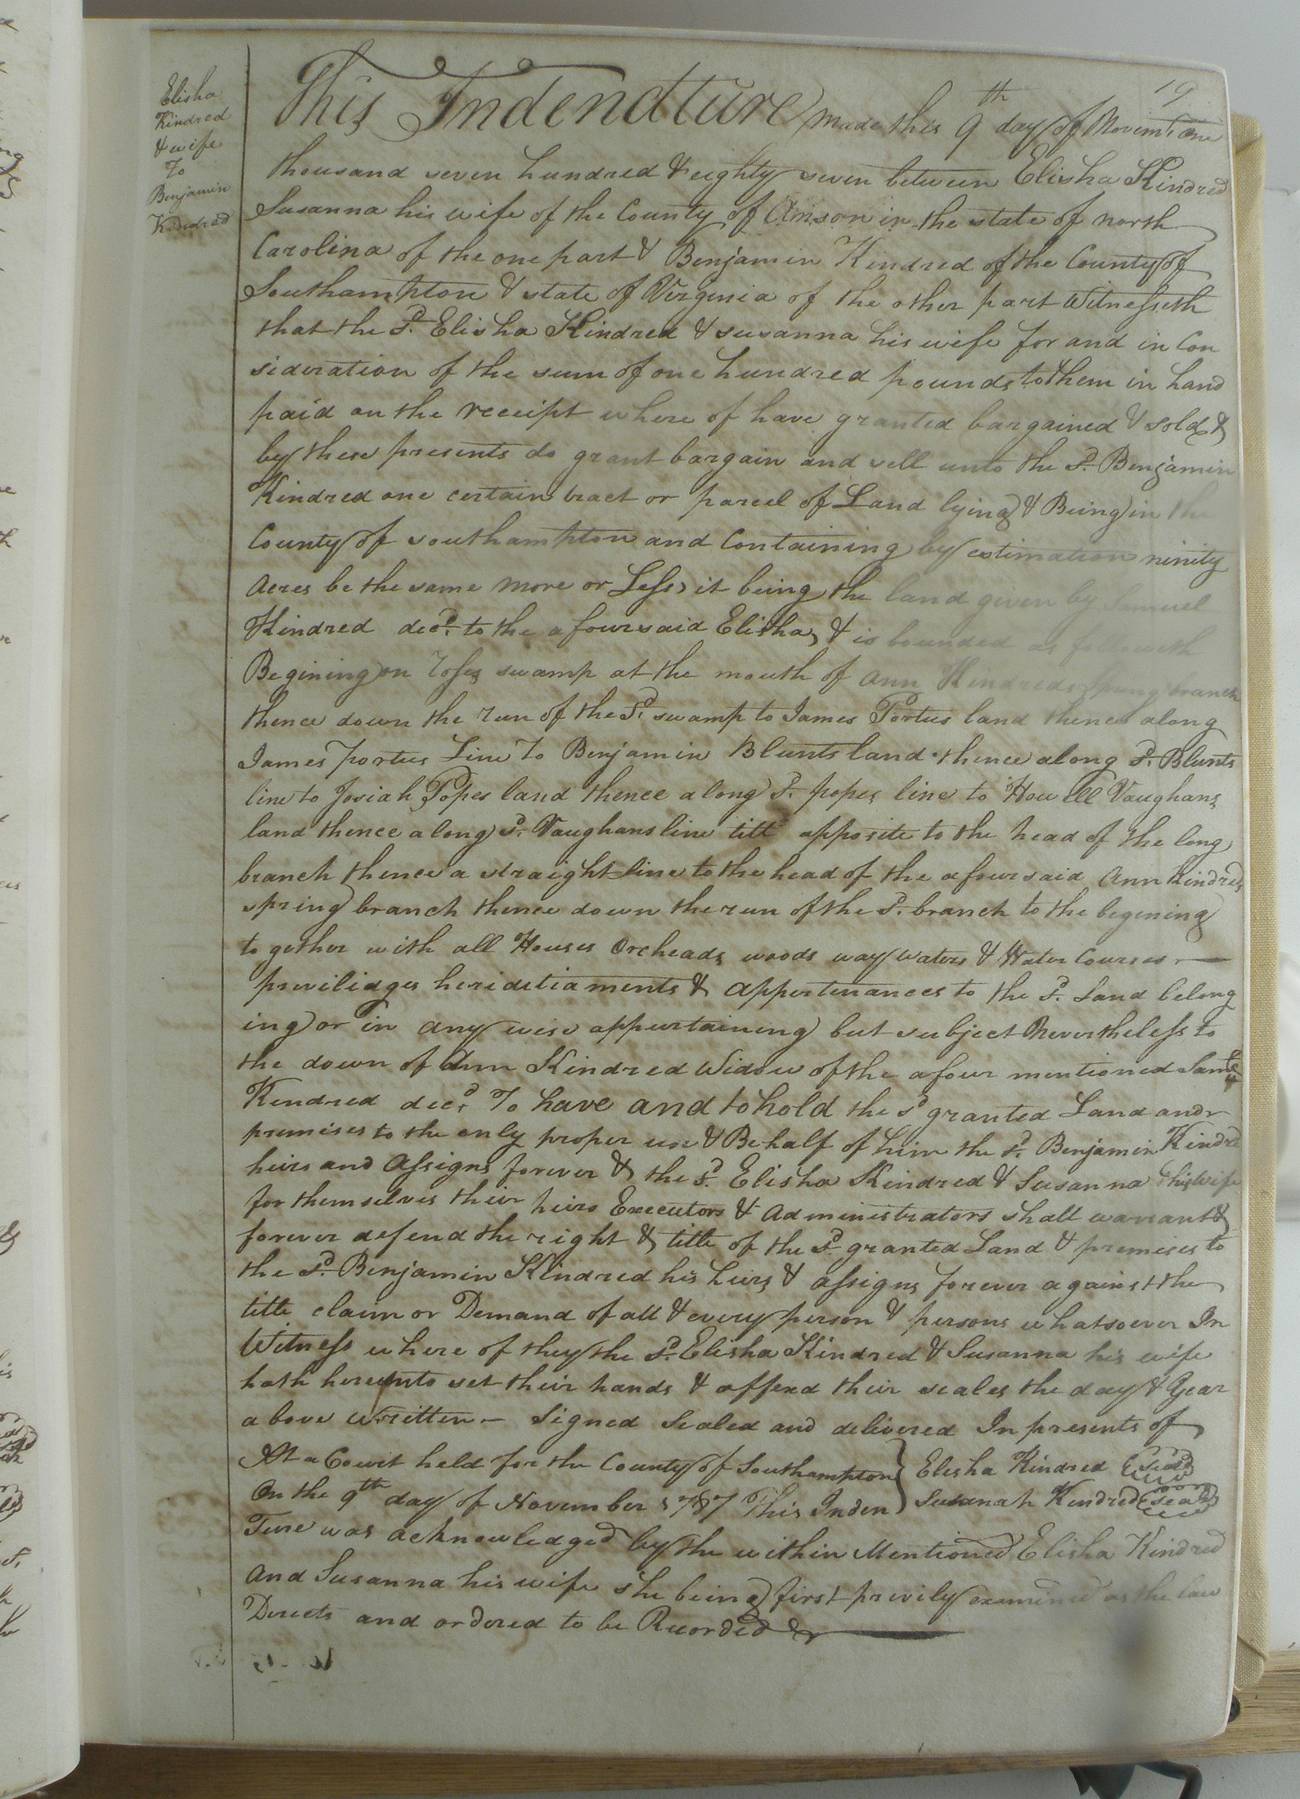 19
Elisha
Kindred
& wife
To
Benjamin
Kindred
This Indendture made this 9th day of Novemr. One
thousand seven hundred & eighty seven between Elisha Kindred
Susanna his wife of the County of Anson in the state of north
Carolina of the one part & Benjamin Kindred of the County of
Southampton & state of Virginia of the other part Witnesseth
that the Sd. Elisha Kindred & susanna his wife for and in Con
sideration of the sum of one hundred pounds to them in hand
paid on the receipt where of have granted bargained & sold &
by these presents do grant bargain and sell unto the Sd. Benjamin
Kindred one certain tract or parcel of Land lying & Being in the
County of southampton and Containing by estimation ninity
Acres be the same more or Less, it being the land given by Samuel
Kindred decd. to the afoursaid Elisha, & is bounded as followeth
Begining on swamp at the mouth of Ann Kindreds Spring branch
thence down the run of the Sd. swamp to James Portus land thence along
James portus Line To Benjamin Blunts land thence along Sd. Blunts
line to Josiah Popes land thence along Sd. popes line to Howell Vaughans
land thence along Sd. Vaughans line till apposite to the head of the long
branch thence a straight line to the head of the afoursaid Ann Kindreds
spring branch thence down the run of the Sd. branch to the begening
to gether with all Houses Orcheads woods way waters & Water Courses
priviliadges heriditiaments & appertenances to the Sd. Land belong
ing or in any wise appurtaining but subject Nevertheless to
the down of Ann Kindred Widow of the afour mentioned Saml.
Kindred decd. To have and to hold the sd granted Land and
premises to the only proper use & Behalf of him the sd. Benjamin Kindred
heirs and Assigns forever & the sd. Elisha Kindred & Susanna his wife
for themselves their heirs Executors & Administrators shall warrant &
forever defend the right & title of the sd. granted Land & premises to
the sd. Benjamin Kindred his heirs & assigns forever against the
title claim or Demand of all & every person & persons whatsoever In
Witness where of they the sd. Elisha Kindred & Susanna his wife
hath hereunto set their hands & affexd their seales the day & Year
above written – Signed Sealed and delivered In presents of
At a Court held for the County of Southampton } Elisha Kindred (seal)
On the 9th day of November 1787 This Inden } Susanah Kindred (seal)
Ture was acknowledged by the within Mentioned Elisha Kindred
And Susanna his wife she being first privily examined as the law
Directs and ordered to be Recorded &